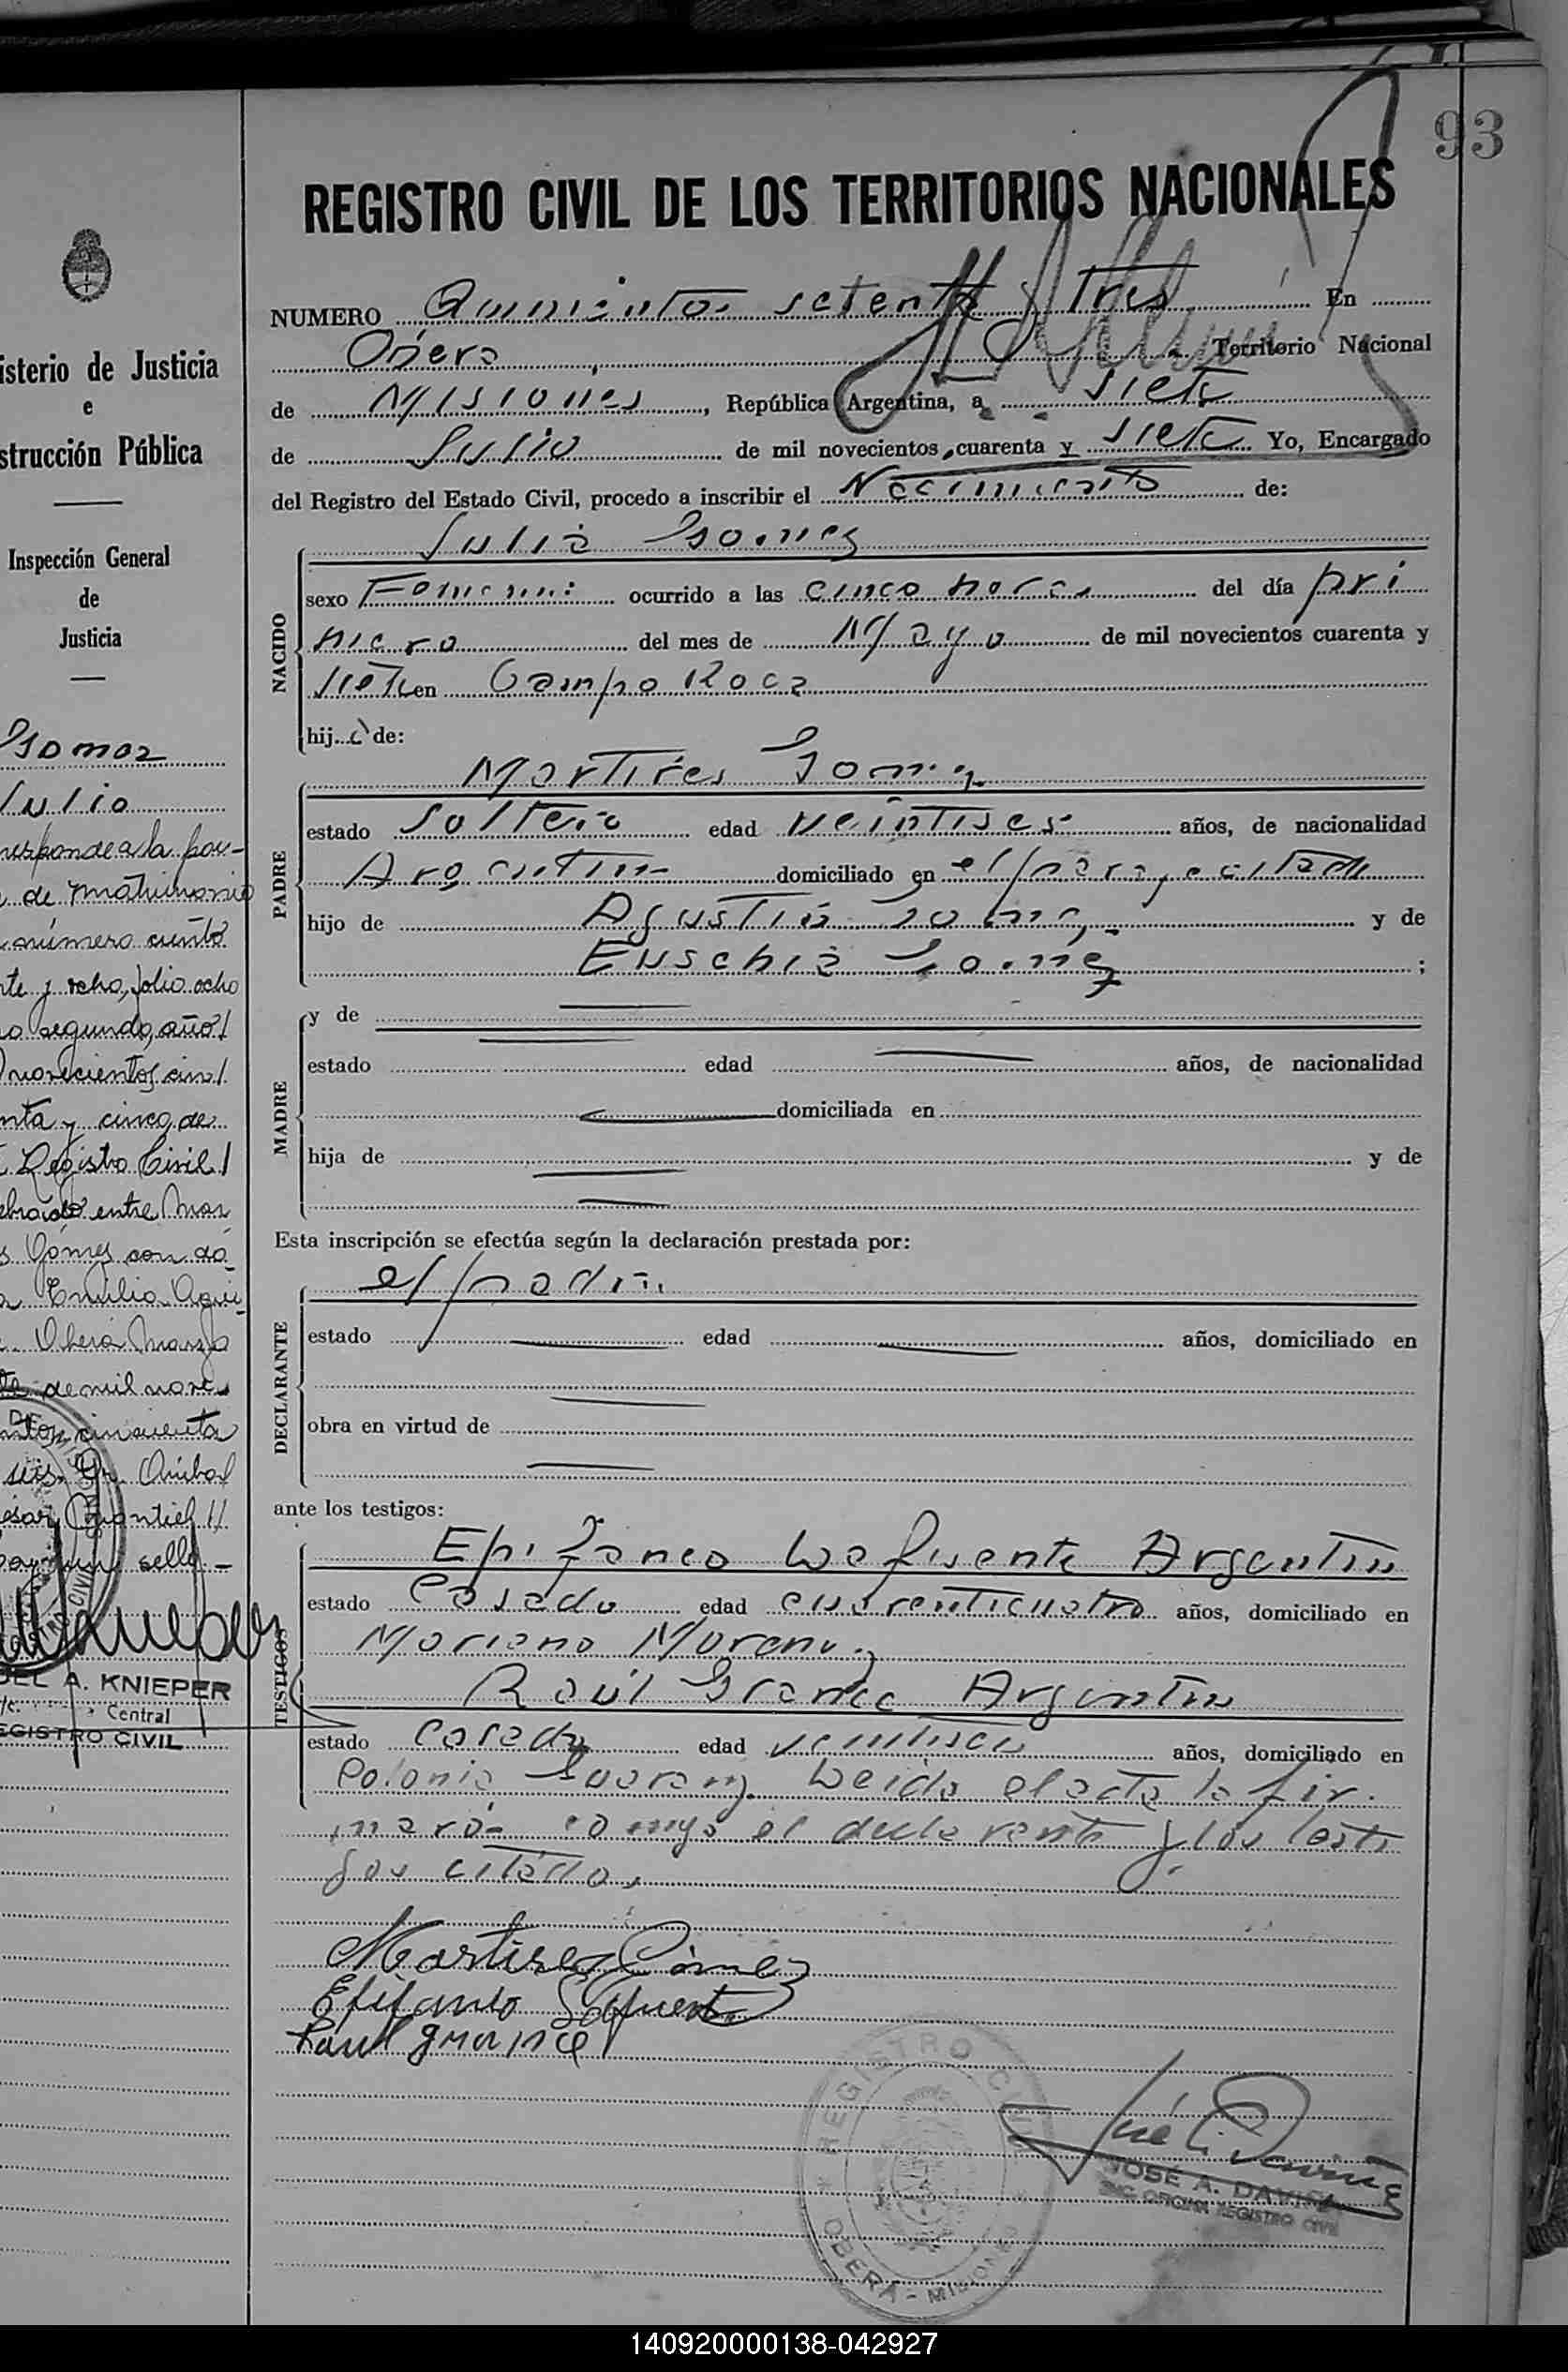 93
REGISTRO CIVIL DE LOS TERRITORIOS NACIONALES
NUMERO Quinientos setenta y Tres En
Oberá Territorio Nacional
de Misiones, República Argentina, a siete
de Julio de mil novecientos cuarenta y siete Yo, Encargado
del Registro del Estado Civil, procedo a inscribir el Nacimiento de:
NACIDO
Julia Gomez
sexo Femenino ocurrido a las cinco horas del día pri
mero del mes de Mayo de mil novecientos cuarenta y
siete en Campo Roca
hija de:
PADRE
Martires Gomez
estado soltero edad veintiseis años, de nacionalidad
Argentin domiciliado en el paraje citado
hijo de Agustin Gomez y de
Eusebia Gomez;
MADRE
y de
estado edad años, de nacionalidad
domiciliada en
hija de y de
Esta inscripción se efectúa según la declaración prestada por:
DECLARANTE
el padre
estado edad años, domiciliado en
obra en virtud de
ante los testigos:
TESTIGOS
Epifaneo Lafuente Argentin
estado Casado edad cuarenticuatro años, domiciliado en
Mariano Moreno y
Raúl Grance Argentin
estado casado edad veintiseis años, domiciliado en
Colonia Guarany. Leida el acta la fir.
maron conmigo el declarante y los testi
gos citados
Martires Gómez
Epifaneo Lafuente
Raul Grance
REGISTRO CIVIL
OBERÁ - MISIONES
JOSÉ A. DAVIÑA
ENC. OFICINA REGISTRO CIVIL
isterio de Justicia
e
strucción Pública
Inspección General
de
Justicia
Gomez
Julia
rresponde a la par-
de matrimonio
número ciento
nte y ocho, folio ocho
o segundo, año/
novecientos cin/
nta y cinco de
Registro Civil/
ebrado entre Mar
s Gómez con do
Emilia Agui
Oberá Marzo
de mil nove
ntos cincuenta
seis. Anibal
esar Montiel //
sello -
UEL A. KNIEPER
Central
EGISTRO CIVIL
140920000138-042927